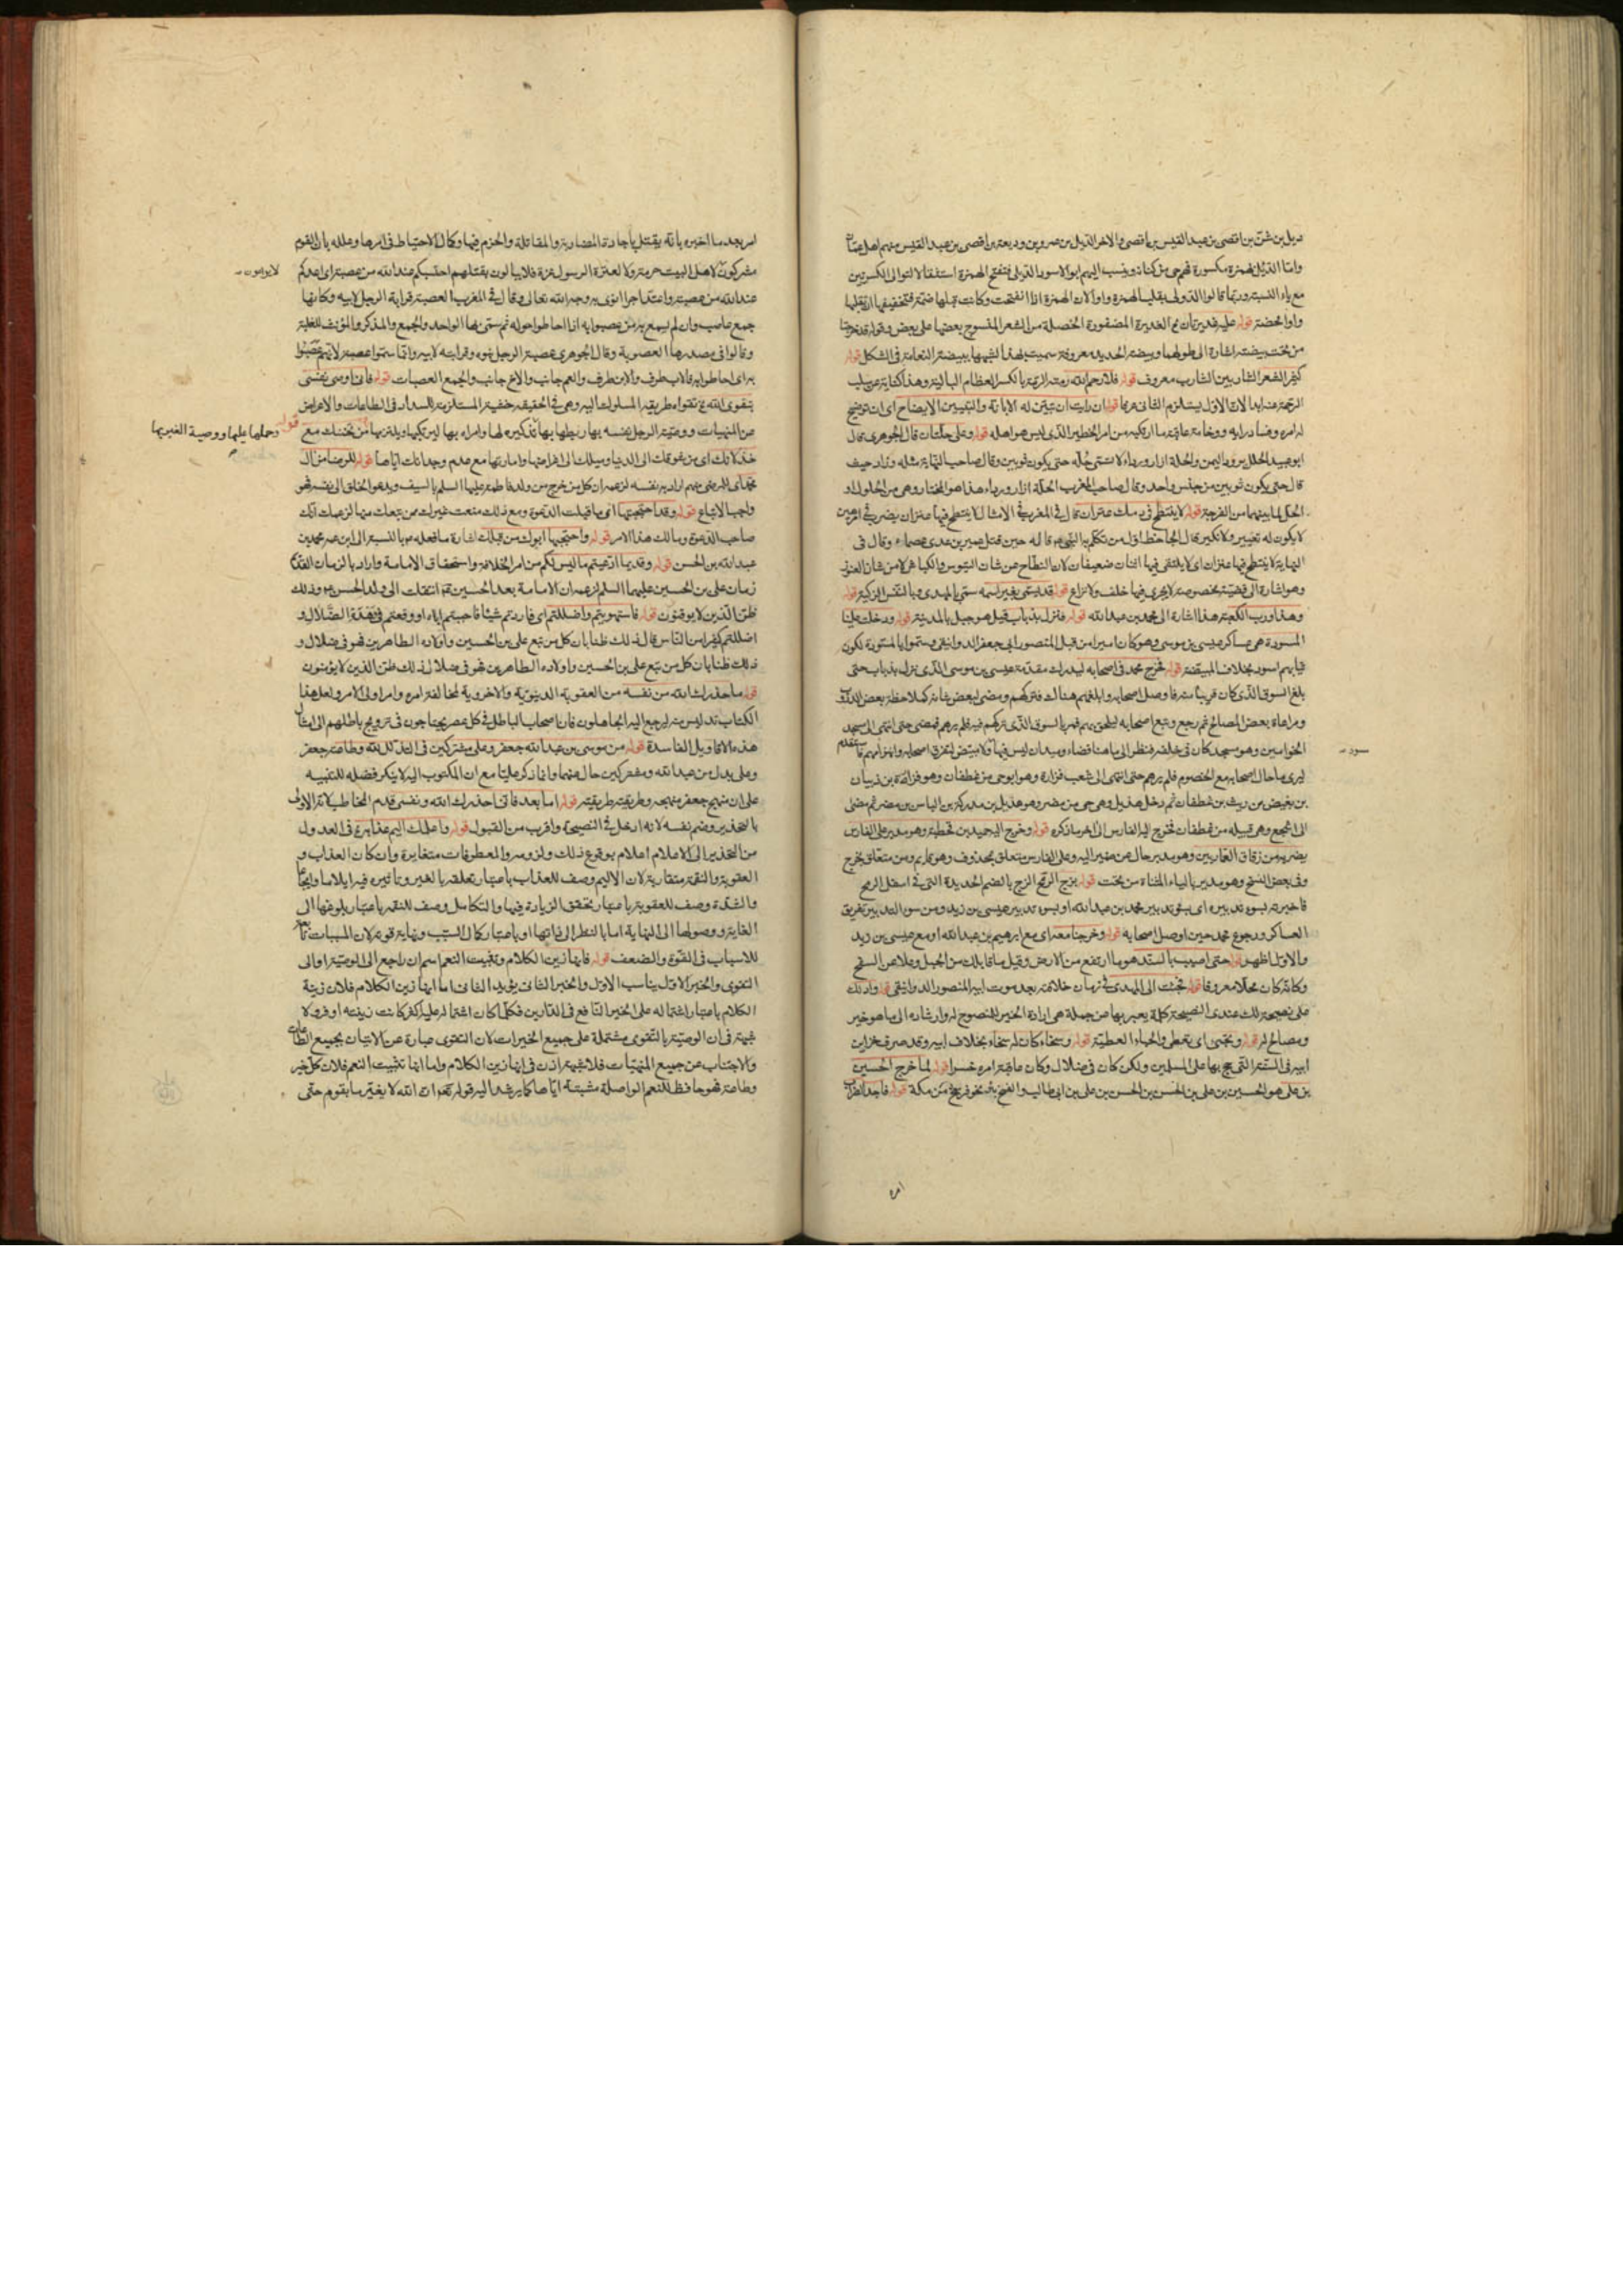 ديل بن شن بن اقصى بن عبد القيس بن اقصى والاخر الديل بن عمرو بن وديعة بن اقصى بن عبد القيس منهم اهل عمان
واما الدئل بهمزة مكسورة فهم حي من كنانة وينسب اليهم ابو الاسود الدئلى فتفتح الهمزة استثقالا لتوالى الكسرتين
مع ياء النسبة وربما قالوا الدولى بقلب الهمزة واوا لان الهمزة اذا انفتحت وكانت قبلها ضمة فتخفيفها ان تقلبها
واوا محضة قوله عليه غديرتان الغديرة المضفورة الخصلة من الشعر المنسوج بعضها على بعض وقوله قد خرجتا
من تحت بيضة اشارة الى طولهما وبيضة الحديد معروفة سميت بهذا لشبهها ببيضة النعامة فى الشكل قوله
كثير الشعر الشاربين الشارب معروف قوله فلا رحم الله رمته الرمة بالكسر العظام البالية وهذا كناية عن سلب
الرحمة عنه ابدا لان الاول يستلزم الثانى عرفا قوله ان رايت ان تبين له الابانة والتبيين الايضاح اى ان توضح
له امره وفساد رايه ووخامة عاقبة ما ارتكبه من امر الخطير الذى ليس هو اهله قوله وعلى حلتان قال الجوهرى قال
ابو عبيد الحلل برود اليمن والحلة ازار ورداء لا تسمى حلة حتى يكون ثوبين وقال صاحب النهاية مثله وزاد حيث
قال حتى يكون ثوبين من جنس واحد وقال صاحب المغرب الحلة ازار ورداء هذا هو المختار وهى من الحلول او
الحل لما بينهما من الفرجة قوله لا ينتطح فى دمك عنزان قال فى المغرب فى الامثال لا ينتطح فيها عنزان يضرب فى امر هين
لا يكون له تغيير ولا نكير قال الجاحظ اول من تكلم به النبى ص قاله حين قتل عمير بن عدى عصماء وقال فى
النهاية لا ينتطح فيها عنزان اى لا يلتقى فيها اثنان ضعيفان لان النطاح من شان التيوس والكباش لا من شان العنوز
وهو اشارة الى قضية مخصوصة لا يجرى فيها خلف ولا نزاع قوله قد يسمى بغير اسمه سمى بالمهدى وبالنفس الزكية قوله
وهذا ورب الكعبة هذا اشارة الى محمد بن عبد الله قوله فنزل بذباب قيل هو جبل بالمدينة قوله ودخلت علينا
المسودة هى عساكر عيسى بن موسى وهو كان اميرا من قبل المنصور ابى جعفر الدوانيقى وسموا بالمسودة لكون
ثيابهم اسود بخلاف المبيضة قوله فخرج محمد فى اصحابه ليدرك مقدمة عيسى بن موسى الذى نزل بذباب حتى
بلغ السوق الذى كان قريبا منه فاوصل اصحابه وابلغهم هناك فتركهم ومضى لبعض شانه كملاحظة بعض
ومراعاة بعض المصالح ثم رجع وتبع اصحابه ليلحق بهم فمر بالسوق الذى تركهم فيه فلم يرهم فمضى حتى انتهى الى مسجد
الخوامين وهو مسجد كان فى خلفه فنظر الى ما هنا فضاء وميدان ليس فيها مسود ولا مبيض لتفرق اصحابه وانهزامهم فاستقدم
ليرى ما حال اصحابه مع الخصوم فلم يرهم حتى انتهى الى شعب فزارة وهو ابو حى من غطفان وهو فزارة بن ذبيان
بن بغيض بن ريث بن غطفان ثم دخل هذيل وهى حى من مضر وهو هذيل بن مدركة بن الياس بن مضر ثم مضى
الى اشجع وهى قبيلة من غطفان فخرج اليه الفارس الى اخر ما ذكره قوله وخرج اليه حميد بن قحطبة وهو مدبر على الفارس
يضربه من زقاق العماريين وهو مدبر حال عن ضمير اليه وعلى الفارس متعلق بمحذوف وهو هاجم ومن متعلق بخرج
وفى بعض النسخ وهو مدير بالياء المثناة من تحت قوله بزج الرمح الزج بالضم الحديدة التى فى اسفل الرمح
فاخبره بسوء تدبيره اى بسوء تدبير محمد بن عبد الله او بسوء تدبير عيسى بن زيد ومن سوء التدبير تفريق
العساكر ورجوع محمد حين اوصل اصحابه قوله وخرجنا معه اى مع ابرهيم بن عبد الله او مع عيسى بن زيد
والاول اظهر قوله حتى اصيب بالسند هو ما ارتفع من الارض وقيل ما قابلك من الجبل وعلا عن السفح
وكانه كان محلا معروفا قوله فجئت الى المهدى فى زمان خلافته بعد موت ابيه المنصور الدوانيقى قوله وادلك
على نصيحة لك عندى النصيحة كلمة يعبر بها عن جملة هى ارادة الخير للمنصوح له وارشاده الى ما هو خير
ومصالح له قوله ويحبنى اى يعطى والحباء العطية قوله وسخاء كان له سخاء بخلاف ابيه وقد صرف خزاين
ابيه فى السنة التى حج بها على المسلمين ولكن كان فى ضلال وكان عاقبة امره خسرا قوله لما خرج الحسين
بن على هو الحسين بن على بن الحسن بن الحسن بن على بن ابى طالب والفخ بئر نحو فرسخ من مكة قوله فاجد الضراب
مسود
امره
امر بعد ما اخبره بانه يقتل باجادة المضاربة والمقاتلة والحزم فيها وكمال الاحتياط فى امرها وعلله بان القوم
مشركون لا يرون لاهل البيت حرمة ولا لعترة الرسول عزة فلا يبالون بقتلهم احتسبكم عند الله من عصبة اى اعدكم
عند الله من عصبة واعتد اجرا انوى به وجه الله تعالى وقال فى المغرب العصبة قرابة الرجل لابيه وكانها
جمع عاصب وان لم يسمع به من عصبوا به اذا احاطوا حوله ثم سمى بها الواحد والجمع والمذكر والمؤنث للغلبة
وقالوا فى مصدرها العصوبة وقال الجوهرى عصبة الرجل بنوه وقرابته لابيه وانما سموا عصبة لانهم عصبوا
به اى احاطوا به فالاب طرف والابن طرف والعم جانب والاخ جانب والجمع العصبات قوله فانى اوصى نفسى
بتقوى الله تقواه طريقة المسلوك اليه وهى فى الحقيقة خشية المستلزمة للسداد فى الطاعات والاعراض
عن المنهيات ووصية الرجل نفسه بها ربطها بها وتذكيره لها وامراه بها ليرتكبها ويلتزمها قوله من تحننك مع
خذلانك اى من شوقك الى الدنيا وميلك الى اغراضها وامارتها مع عدم وجدانك اياها قوله للرضا من ال
محمد اى للمرضى منهم اراد به نفسه لزعمه ان كل من خرج من ولد فاطمة عليها السلم بالسيف ويدعو الخلق الى نفسه فهو
واجب الاتباع قوله وقد احتجبتها اى ما قبلت الدعوة ومع ذلك منعت غيرك ممن يتبعك منها لزعمك انك
صاحب الدعوة ومالك هذا الامر قوله واحتجبها ابوك من قبلك اشارة ما فعله ع بالنسبة الى ابن عمه محمد بن
عبد الله بن الحسن قوله وقديما ادعيتم ما ليس لكم من امر الخلافة واستحقاق الامامة واراد بالزمان القديم
زمان على بن الحسين عليهما السلم لزعمه ان الامامة بعد الحسين ع انتقلت الى ولد الحسن ع وذلك
ظن الذين لا يوقنون قوله فاستهويتم واضللتم اى فاردتم شيئا فاحببتم اياه او وقعتم فى هذه الضلال و
اضللتم كثيرا من الناس قال ذلك ظنا بان كل من تبع على بن الحسين واولاده الطاهرين فهو فى ضلال و
ذلك ظنا بان كل من تبع على بن الحسين واولاده الطاهرين فهو فى ضلال ذلك ظن الذين لا يؤمنون
قوله ما حذرك الله من نفسه من العقوبة الدينوية والاخروية لمخالفة امره وامر اولى الامر ولعل هذا
الكتاب تدليس منه ليرجع اليه الجاهلون فان اصحاب الباطل فى كل عصر يحتاجون فى ترويج باطلهم الى امثال
هذه الاقاويل الفاسدة قوله من موسى بن عبد الله جعفر وعلى مشتركين فى التذلل لله وطاعته جعفر
وعلى بدل من عبد الله ومشتركين حال عنهما وانما ذكر عليا مع ان المكتوب اليه لا ينكر فضله للتنبيه
على ان منهج جعفر منهجه وطريقته طريقته قوله اما بعد فانى احذرك الله ونفسى قدم المخاطب لانه الاولى
بالتحذير وضم نفسه لانه ادخل فى النصيحة واقرب من القبول قوله واعلمك اليم عذابه فى العدول
من التحذير الى الاعلام اعلام بوقوع ذلك ولزومه والمعطوفات متغايرة وان كان العذاب و
العقوبة والنقمة متقاربة لان الاليم وصف للعذاب باعتبار تعلقه بالغير وتاثيره فيه ايلاما وايجاعا
والشدة وصف للعقوبة باعتبار تحقق الزيادة فيها والتكامل وصف للنقمة باعتبار بلوغها الى
الغاية ووصولها الى النهاية اما بالنظر الى ذاتها او باعتبار كمال السبب ونهاية قوته لان المسببات تابعة
للاسباب فى القوة والضعف قوله فانها زين الكلام وتثبيت النعم اسم ان راجع الى الوصية او الى
التقوى والخبر الاول يناسب الاول والخبر الثانى يؤيد الثانى اما انها زين الكلام فلان زينة
الكلام باعتبار اشتماله على الخير النافع فى الدارين فكلما كان اشتماله عليه اكثر كانت زينته اوفر ولا
شبهة فى ان الوصية بالتقوى مشتملة على جميع الخيرات لان التقوى عبارة عن الاتيان بجميع الطاعات
والاجتناب عن جميع المنهيات فلا شبهة اذن فى انها زين الكلام واما انها تثبيت النعم فلان كل خير
وطاعة فهو حافظ للنعم الواصلة مثبتة اياها كما يرشد اليه قوله تعالى ان الله لا يغير ما بقوم حتى
لا يرون
قوله وحملها عليها ووصية الغير بها